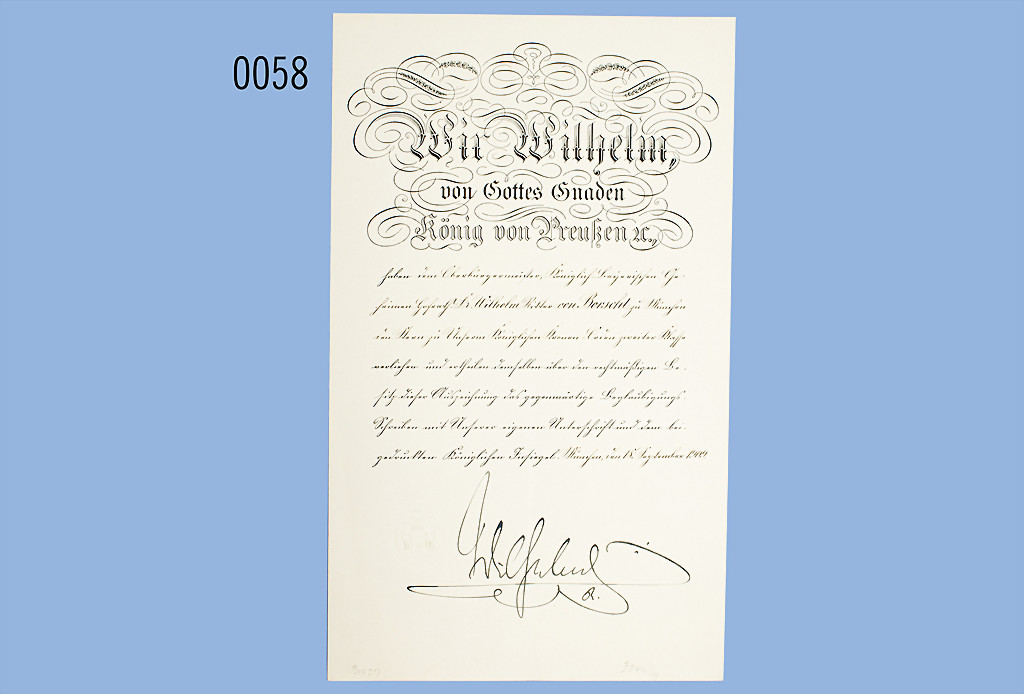 0058
Wir Wilhelm,
von Gottes Gnaden
König von Preußen ꝛc.,
haben dem Oberbürgermeister, Königlich Bayerischen Ge-
heimen Hofrath Dr. Wilhelm Ritter von Borscht zu München
den Stern zu Unserm Königlichen Kronen-Orden zweiter Klasse
verliehen und ertheilen demselben über den rechtmäßigen Be-
sitz dieser Auszeichnung das gegenwärtige Beglaubigungs-
Schreiben mit Unserer eigenen Unterschrift und dem bei-
gedruckten Königlichen Insiegel. München, den 15. September 1909
Wilhelm
R.